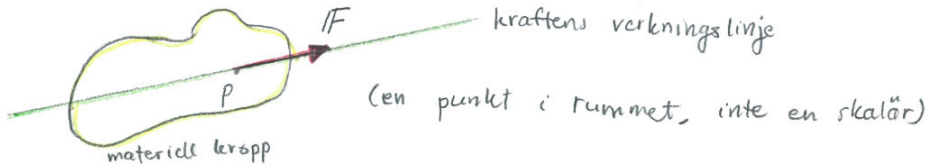 F
kraftens verkningslinje
P
(en punkt i rummet, inte en skalär)
materiell kropp